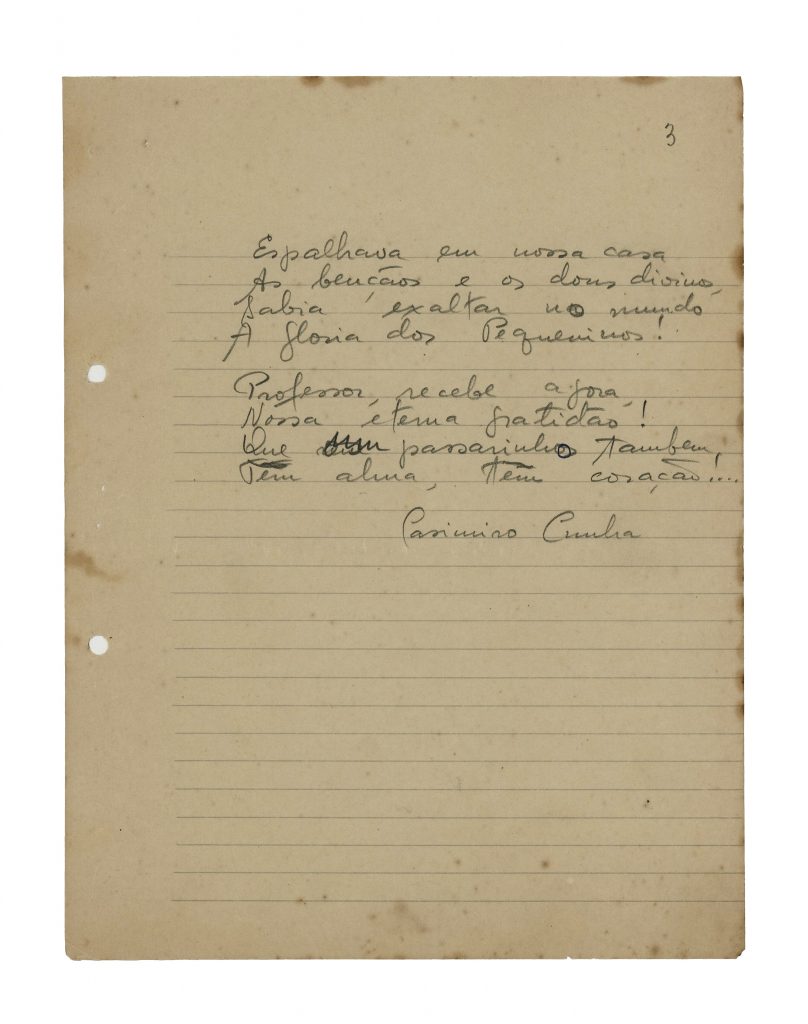 3
Espalhava em nossa casa
As bençãos e os dons divinos,
Sabia exaltar no mundo
A gloria dos Pequeninos!
Professor, recebe agora,
Nossa eterna gratidão!
Que um passarinho tambem,
Tem alma, tem coração!....
Casimiro Cunha